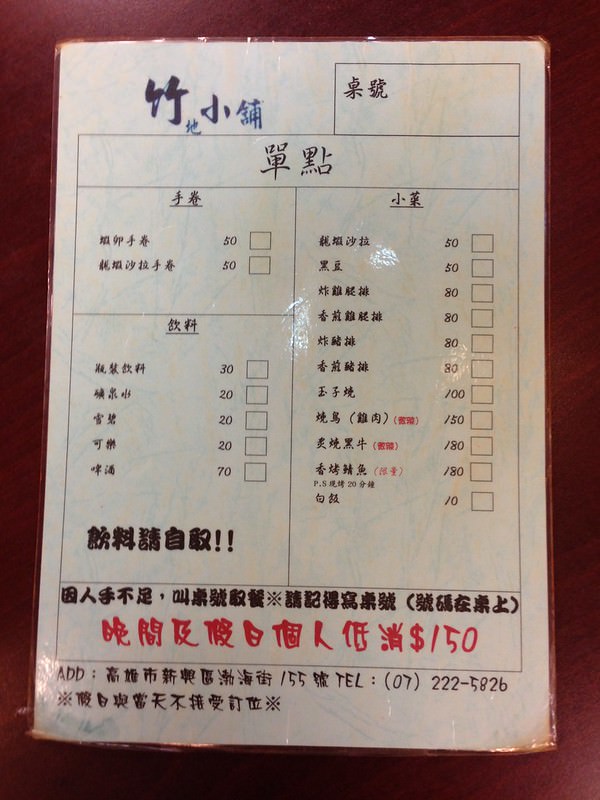 竹地小舖
桌號
單點
手卷
蝦卵手卷 50
龍蝦沙拉手卷 50
飲料
瓶裝飲料 30
礦泉水 20
雪碧 20
可樂 20
啤酒 70
飲料請自取!!
小菜
龍蝦沙拉 50
黑豆 50
炸雞腿排 80
香煎雞腿排 80
炸豬排 80
香煎豬排 80
玉子燒 100
燒鳥(雞肉) 150
炙燒黑牛 180
香烤鯖魚(限量) 180
P.S現烤20分鐘
白飯 10
因人手不足,叫桌號取餐※請記得寫桌號(號碼在桌上)
晚間及假日個人低消$150
ADD:高雄市新興區渤海街155號TEL:(07) 222-5826
※假日與當天不接受訂位※